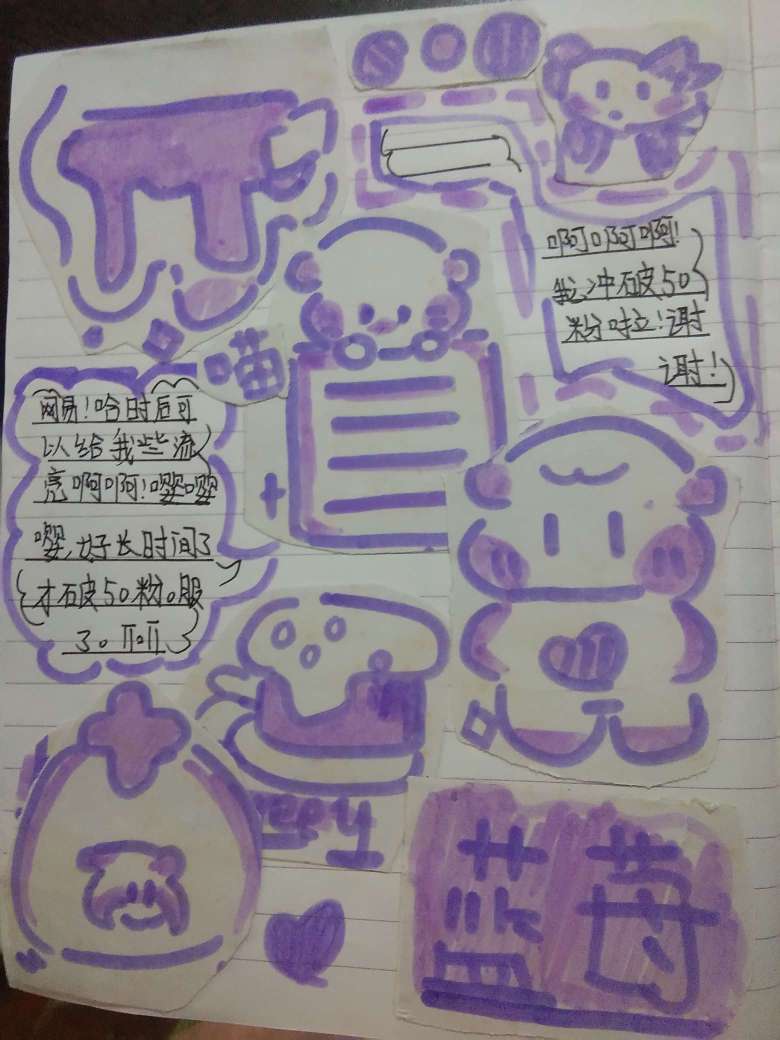 啊啊啊!
我冲破50
粉啦!谢
谢!
喵
网易!啥时后可
以给我些流
亮啊啊!嘤嘤
嘤,好长时间了
才破50粉。服
了。
蓝莓